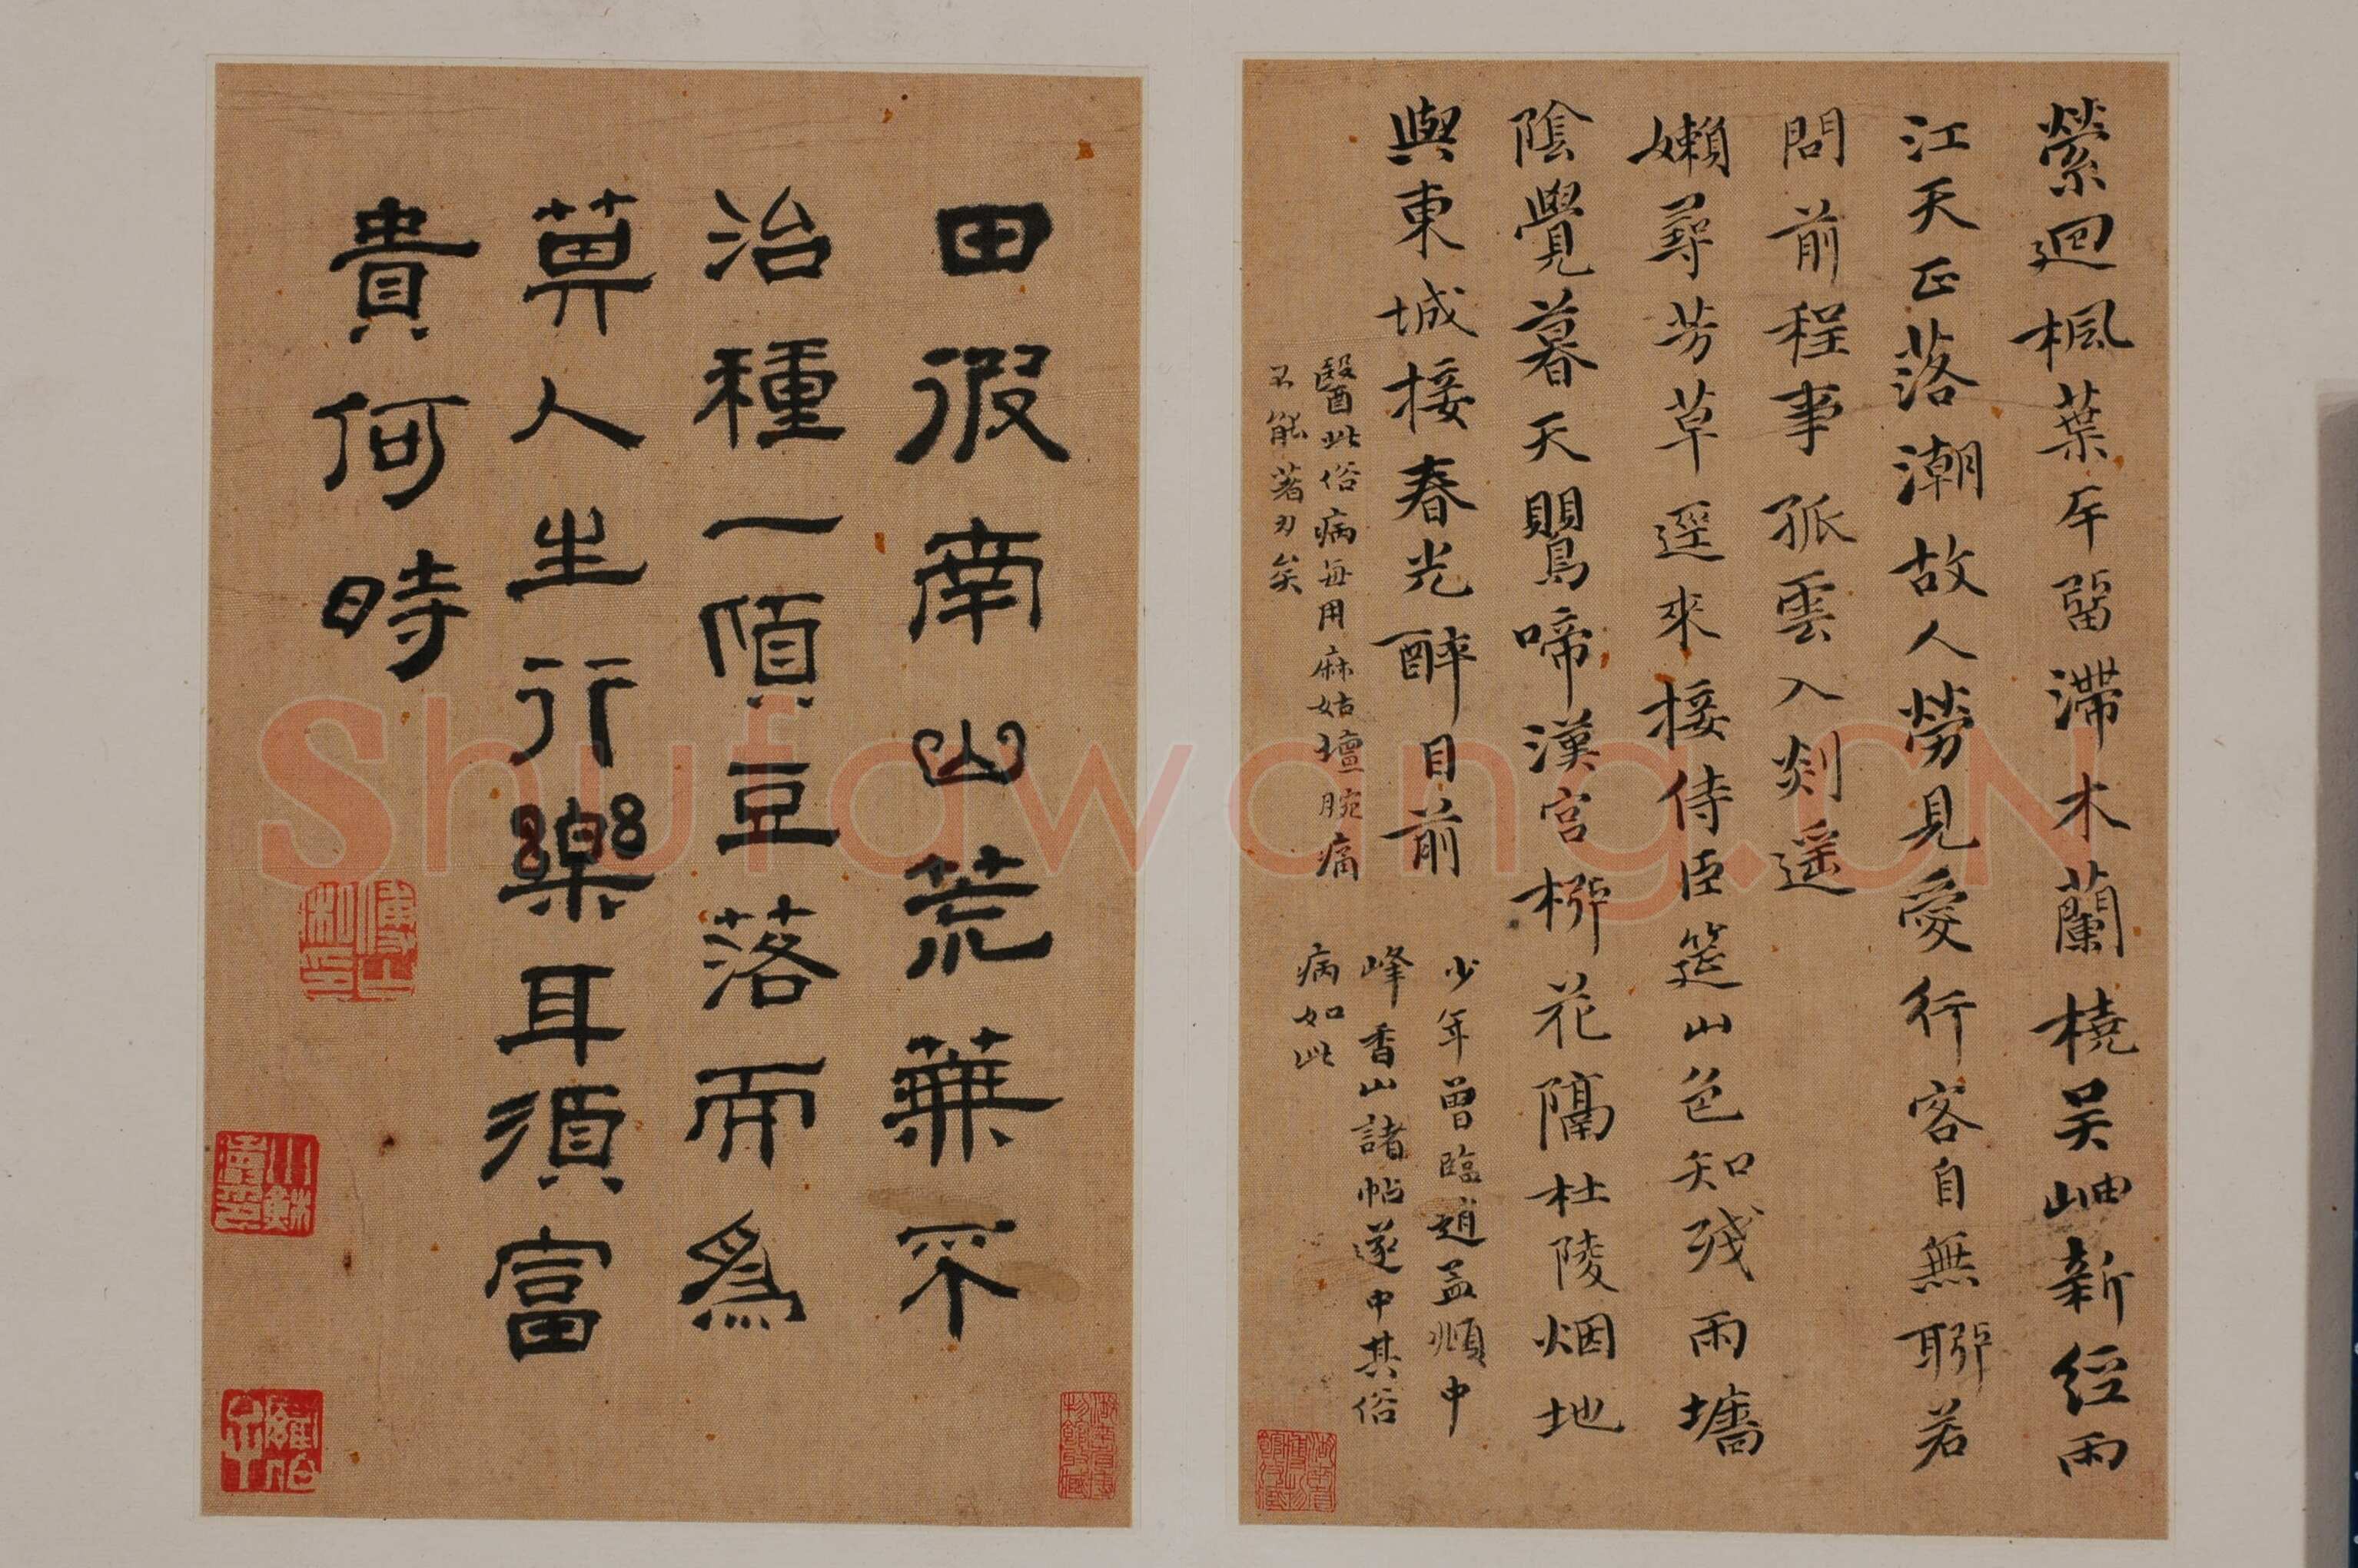 縈迴楓葉岸留滯木蘭橈吴岫新經雨
江天正落潮故人勞見愛行客自無聊若
問前程事孤雲入剡遥
嬾尋芳草逕來接侍臣筵山色知殘雨墻
陰覺暮天鸎啼漢宫柳花隔杜陵烟地
與東城接春光醉目前
少年曾臨趙孟頫中
峰香山諸帖遂中其俗
病如此
醫此俗病每用麻姑壇腕痛
不能著力矣
田彼南山荒蕪不
治種一頃豆落而為
萁人生行樂耳須富
貴何時
傅山私印
Shufawang.CN